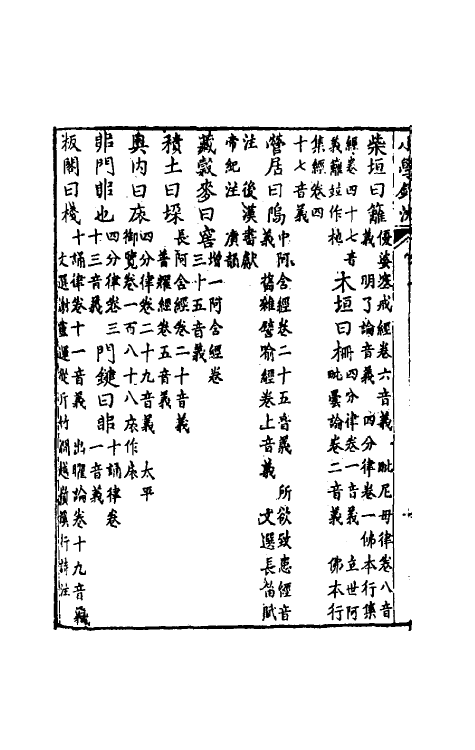 小學鉤沈
柴垣曰籬 優婆塞戒經卷六音義 毗尼母律卷八音
義 明了論音義 四分律卷一 佛本行集
經卷四十七音
義籬竝作杝 木垣曰柵 四分律卷一音義 立世阿
毗曇論卷二音義 佛本行
集經卷四
十七音義
營居曰隖 中阿含經卷二十五音義 所欲致患經音
義 舊雜譬喻經卷上音義 文選長笛賦
注 後漢書獻
帝紀注 廣韻
藏穀麥曰窖 增一阿含經卷
三十五音義
積土曰垛 長阿含經卷二十音義
普耀經卷五音義
奧內曰 四分律卷二十九音義 太平
御覽卷一百八十八 作
非門非也 四分律卷三
十三音義 門鍵曰非 十誦律卷
一音義
板閣曰棧 十誦律卷十一音義 出曜論卷十九音義
文選謝靈運從斤竹澗越嶺溪行詩注